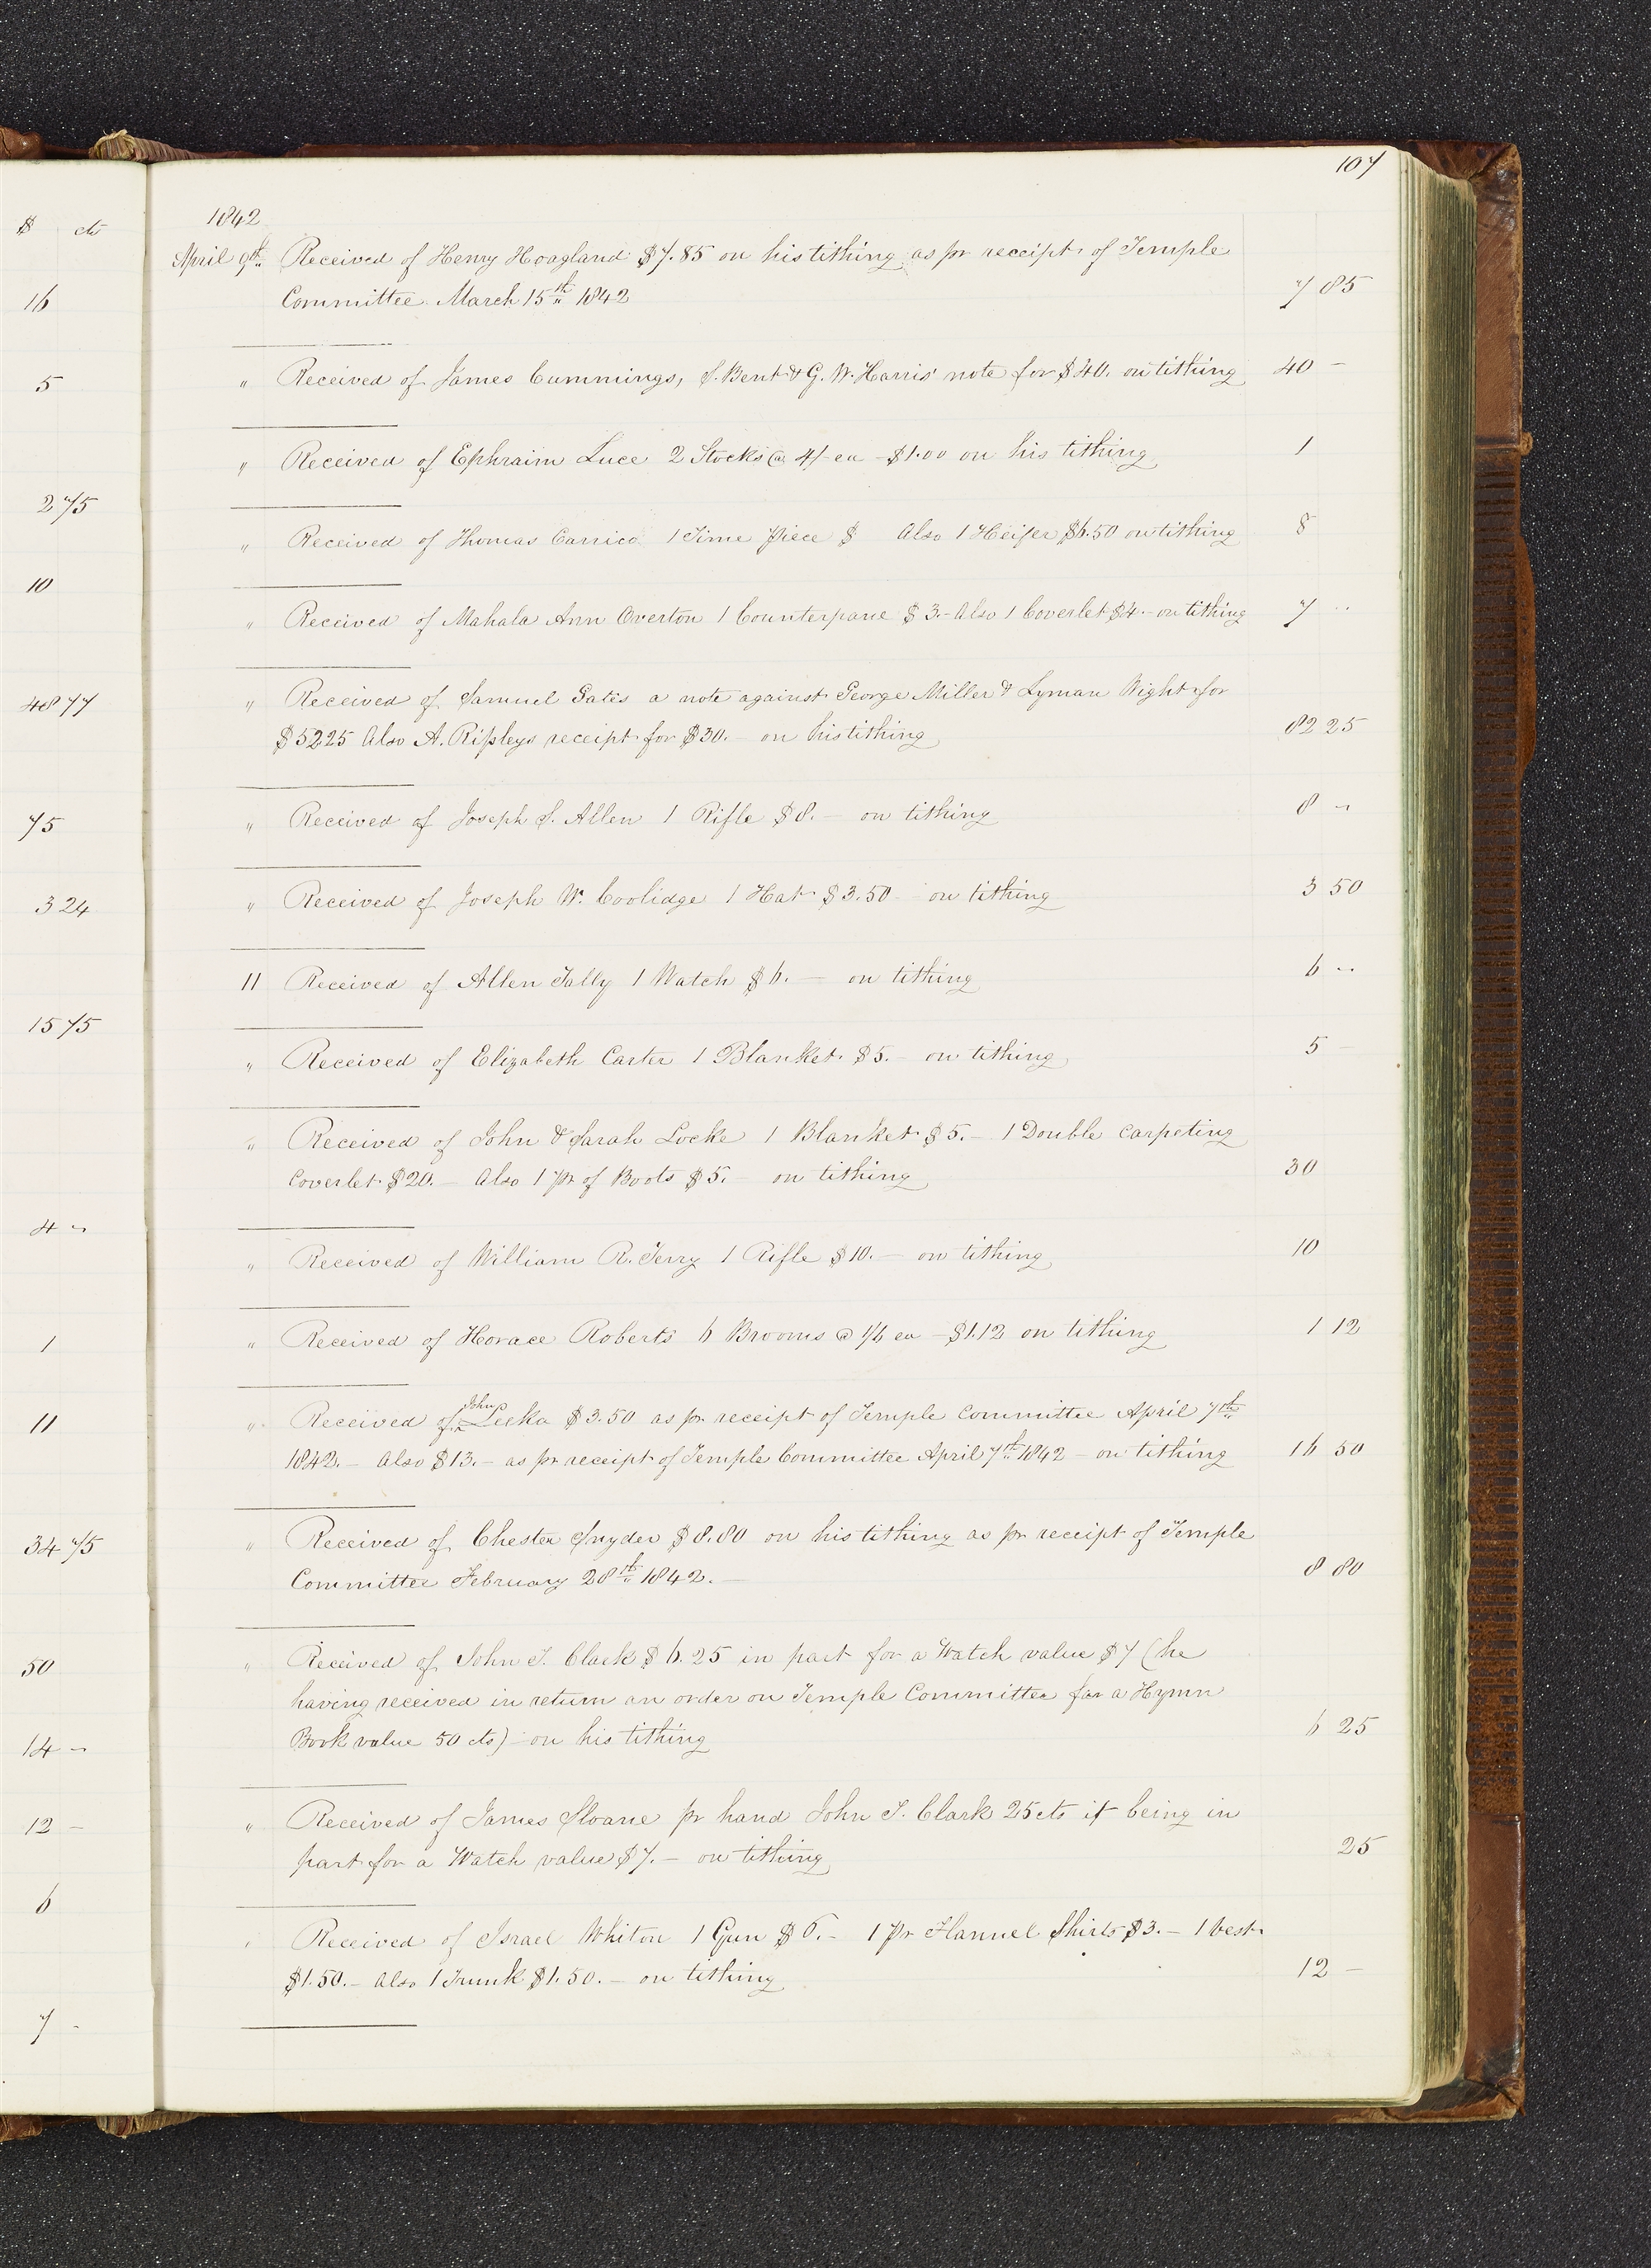 $ cts
16
5
2 75
10
48 77
75
3 24
15 75
4 "
1
11
34 75
50
14 "
12 —
6
7 -
107
1842
April 9th Received of Henry Hoagland $7.85 on his tithing as pr receipt of Temple
Committee March 15th 1842 7 85
" Received of James Cummings, S. Bent & G. W. Harris' note for $40. on tithing 40 —
" Received of Ephraim Luce 2 Stocks @ 4/- ea - $1.00 on his tithing 1
" Received of Thomas Carrico 1 Time Piece $ Also 1 Heifer $6.50 on tithing 8
" Received of Mahala Ann Overton 1 Counterpane $3.- Also 1 Coverlet $4.- on tithing 7 "
" Received of Samuel Gates a note against George Miller & Lyman Wight for
$52 25 Also A. Ripleys receipt for $30. — on his tithing 82 25
" Received of Joseph S. Allen 1 Rifle $8. — on tithing 8 "
" Received of Joseph W. Coolidge 1 Hat $3.50 — on tithing 3 50
11 Received of Allen Tally 1 Watch $6. — on tithing 6 "
" Received of Elizabeth Carter 1 Blanket $5. — on tithing 5 —
" Received of John & Sarah Locke 1 Blanket $5. — 1 Double Carpeting
Coverlet $20. — Also 1 pr of Boots $5. — on tithing 30
" Received of William R. Terry 1 Rifle $10. — on tithing 10
" Received of Horace Roberts 6 Brooms @ 1/6 ea — $1.12 on tithing 1 12
" Received of John Leeka $3.50 as pr receipt of Temple Committee April 7th
1842. — Also $13. — as pr receipt of Temple Committee April 7th 1842 — on tithing 16 50
" Received of Chester Snyder $8.80 on his tithing as pr receipt of Temple
Committee February 28th 1842. — 8 80
" Received of John T. Clark $6.25 in part for a Watch value $7 (he
having received in return an order on Temple Committee for a Hymn
Book value 50 cts) — on his tithing 6 25
" Received of James Sloane pr hand John T. Clark 25 cts it being in
part for a Watch value $7. — on tithing 25
" Received of Israel Whiton 1 Gun $6. — 1 Pr Flannel Shirts $3. — 1 Vest
$1.50. — Also 1 Trunk $1.50. — on tithing 12 —